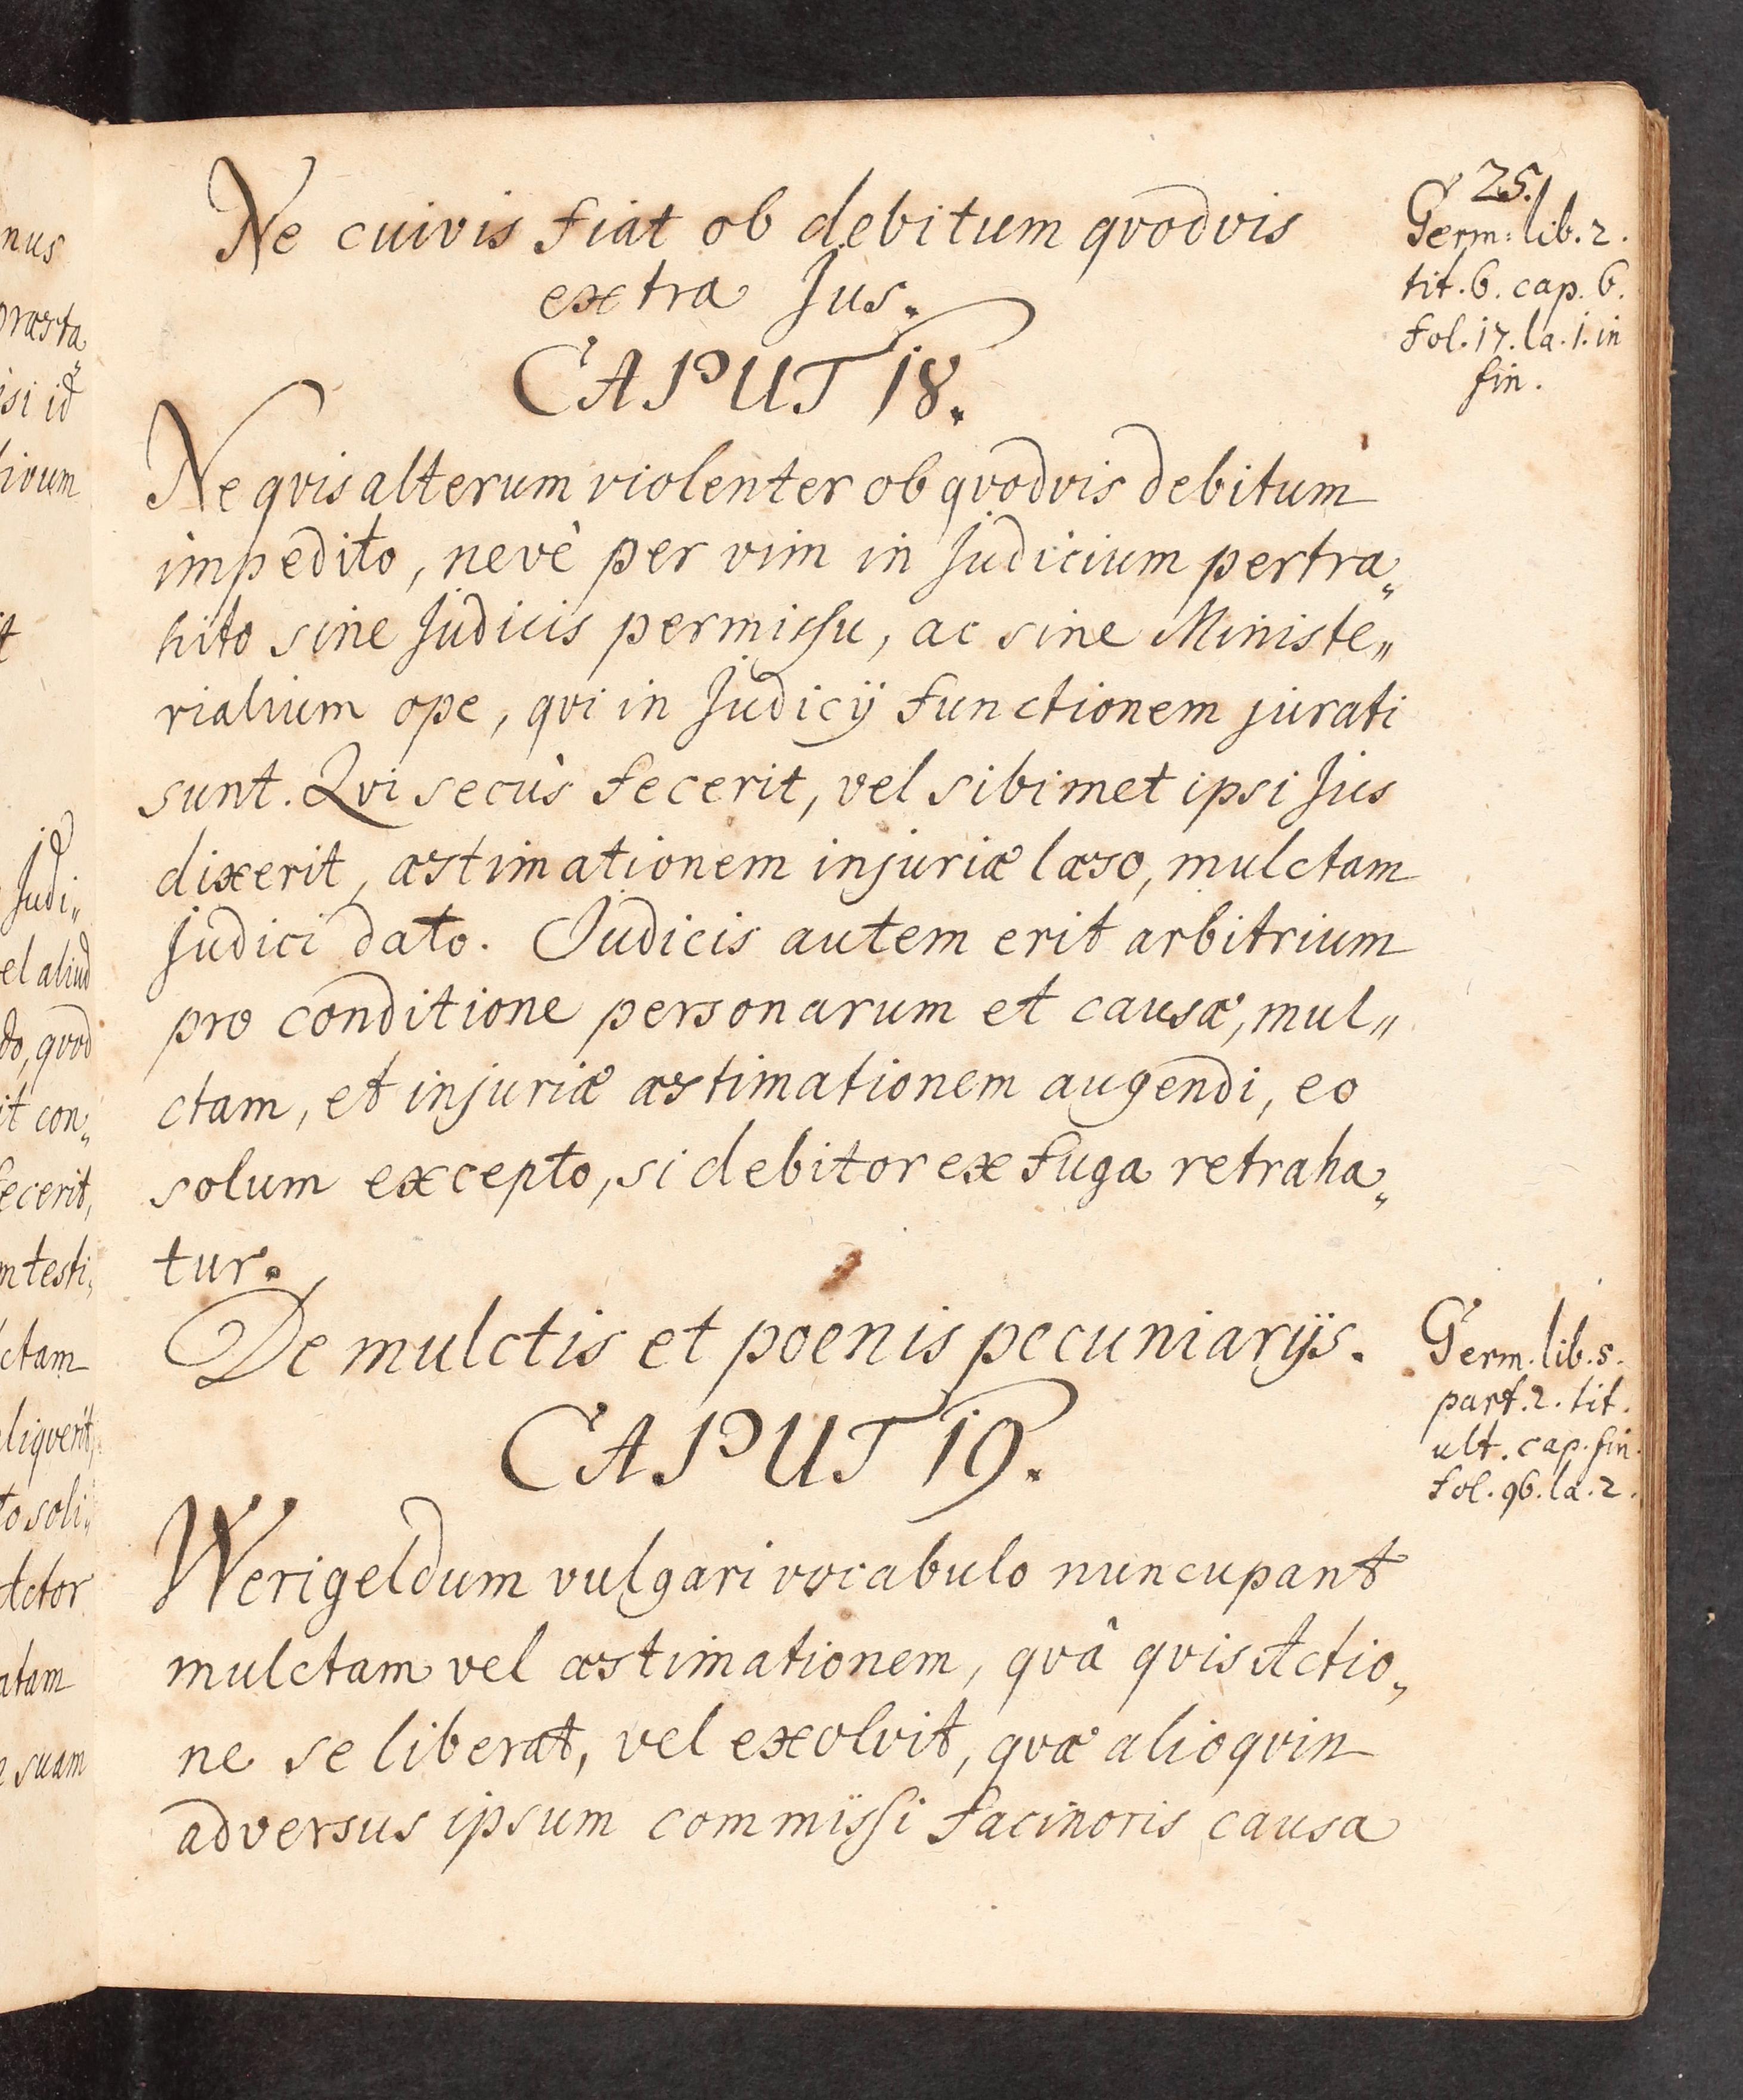 25.
Ne cuivis fiat ob debitum qvodvis
extra Jus.
Germ: lib. 2.
tit. 6. cap. 6.
fol. 17. la. 1. in
fin.
CAPUT 18.
Ne qvis alterum violenter ob qvodvis debitum
impedito, nevè per vim in Judicium pertra„
hito sine Judicis permissu, ac sine Ministe„
rialium ope, qvi in Judicij functionem jurati
sunt. Qvi secùs fecerit, vel sibimet ipsi Jus
dixerit, æstimationem injuriæ læso, mulctam
Judici dato. Judicis autem erit arbitrium
pro conditione personarum et causæ, mul„
ctam, et injuriæ æstimationem augendi, eo
solum excepto, si debitor ex fuga retraha„
tur.
De mulctis et poenis pecuniarijs.
Germ. lib. 5.
part. 2. tit.
ult. cap. fin.
fol. 96. la. 2.
CAPUT 19.
Werigeldum vulgari vocabulo nuncupant
mulctam vel æstimationem, qvâ qvis Actio„
ne se liberat, vel exolvit, qvæ alioqvin
adversus ipsum commissi facinoris causa
nus
præsta„
isi id
it
Judi„
el aliud
do, qvod
it con„
fecerit,
m testi„
ctam
liqverit,
to soli„
Actor
atam
suam